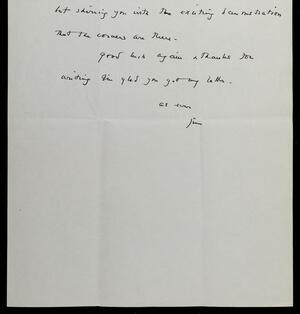 but shining you with the exciting demonstration
that the corners are there.
good luck again & thanks for
writing I'm glad you got my letter.
as ever
Jim